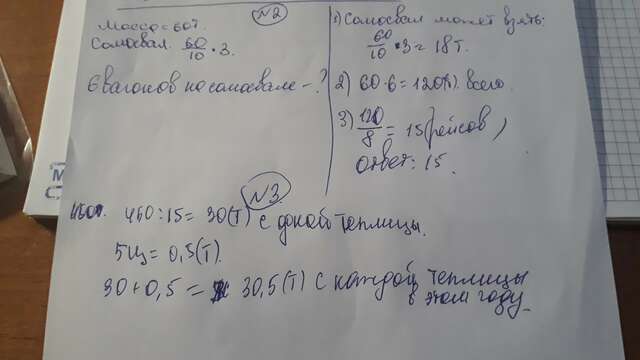 №2
Масса = 60т.
Самосвал. 60/10 · 3.
6 вагонов на самосвале - ?
1) Самосвал может взять:
60/10 · 3 = 18т.
2) 60 · 6 = 120(т). всего.
3) 120/8 = 15 (рейсов)
ответ: 15.
№3.
450т. 450 : 15 = 30(т) с одной теплицы.
5ц = 0,5(т).
30 + 0,5 = 30,5(т) с каждой теплицы
в этом году.